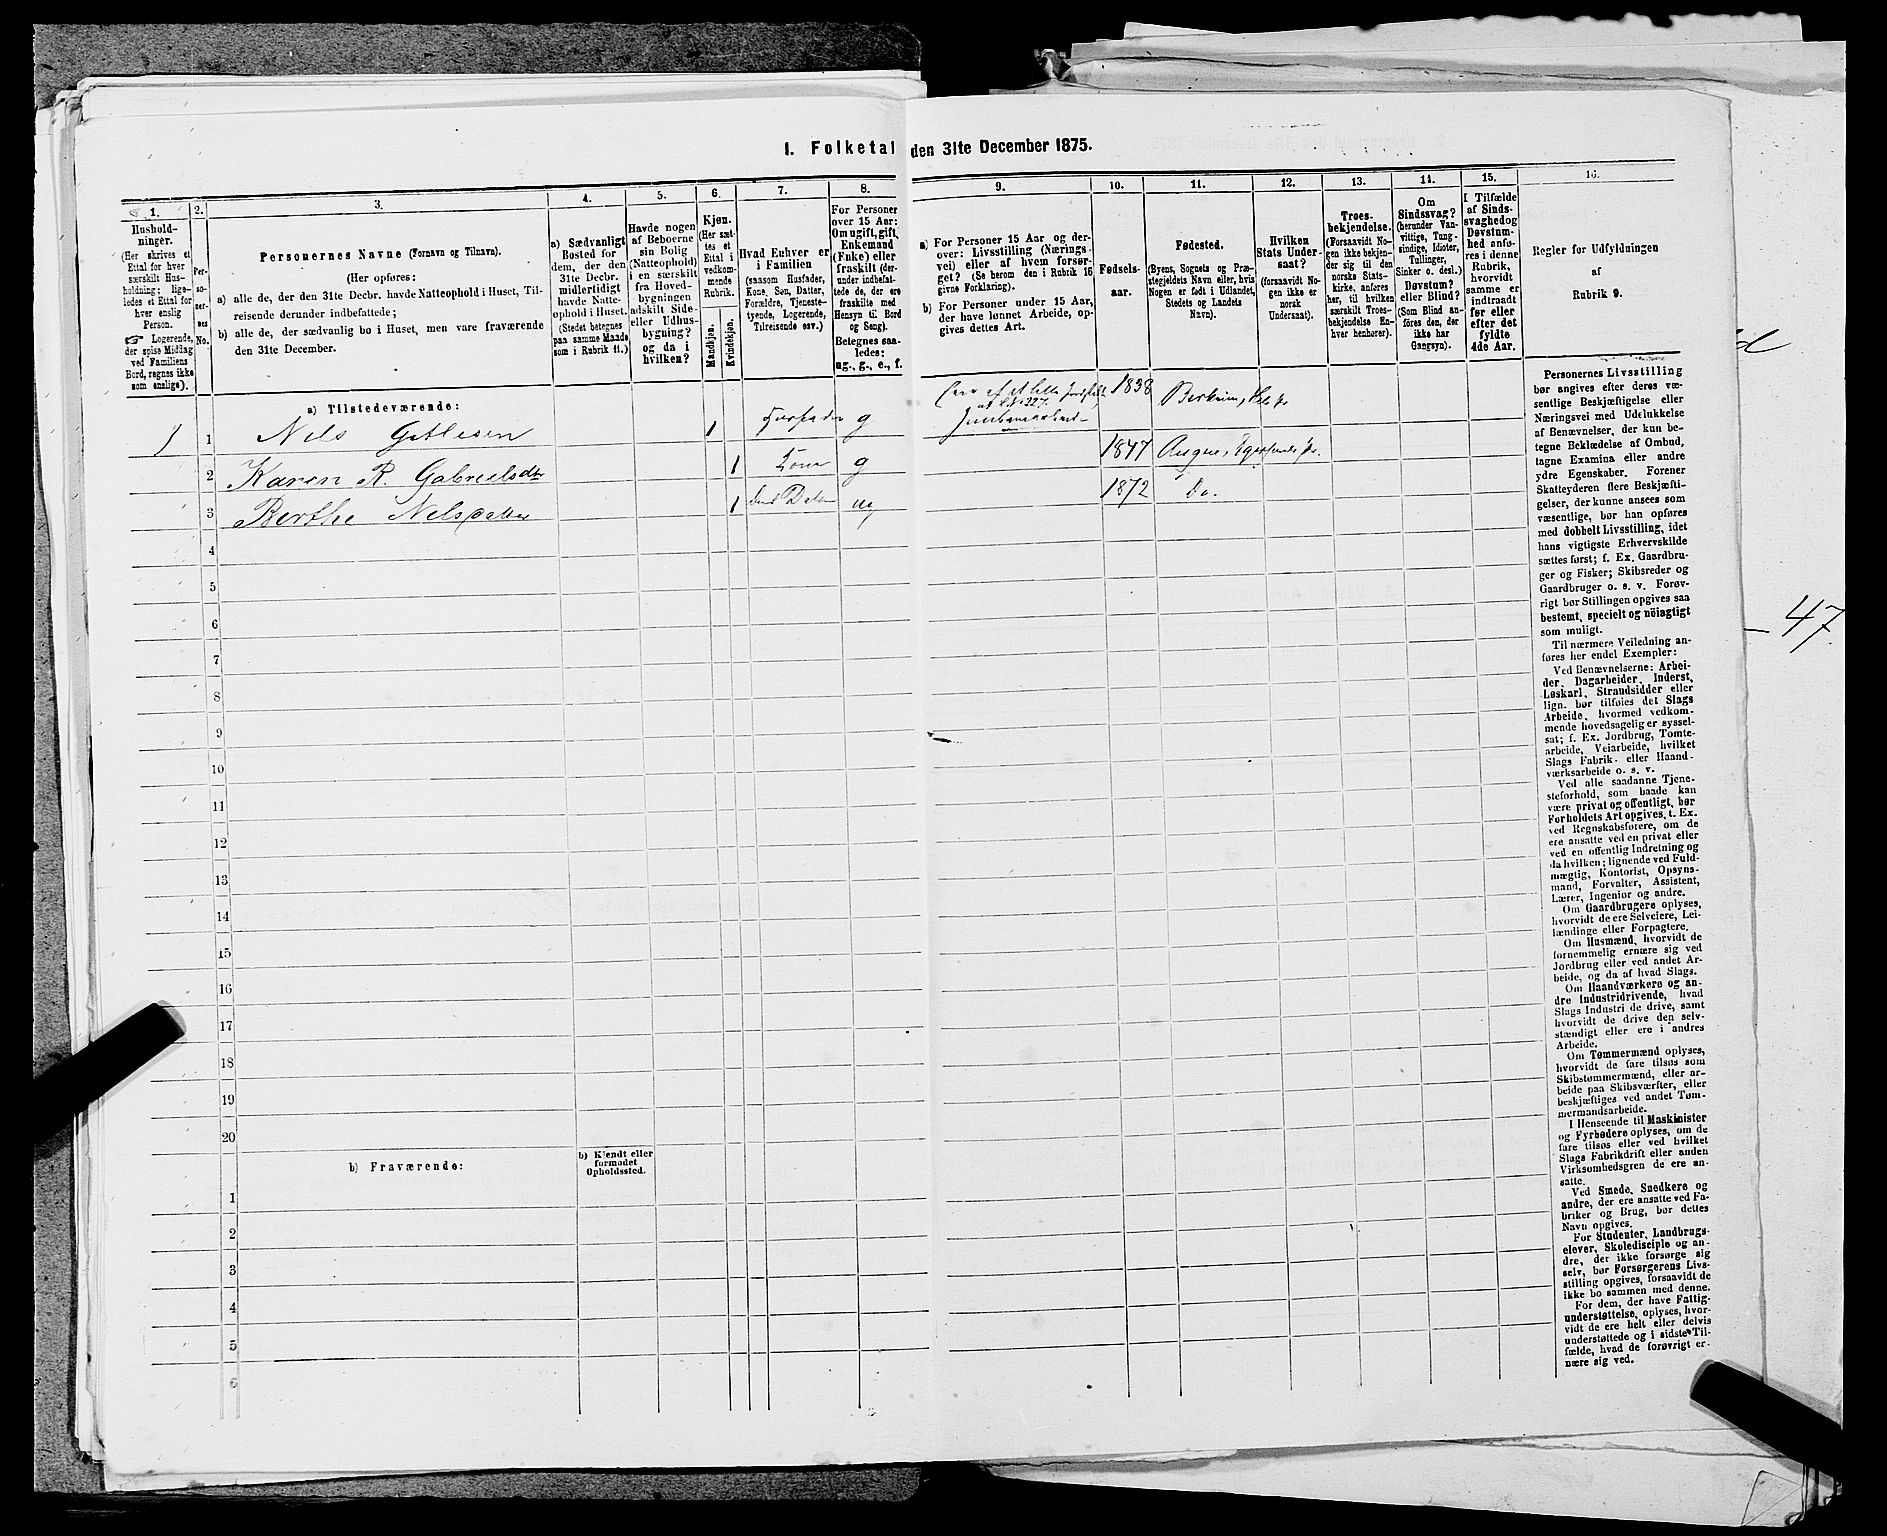 1. Folketal den 31te December 1875.
1.
Hushold-
ninger.
(Her skrives et
Ettal for hver
særskilt Hus-
holdning; lige-
ledes et Ettal for
hver enslig
Person.
☞ Logerende,
der spise Middag
ved Familiens
Bord, regnes ikke
som enslige).
2.
Per-
so-
ner-
nes
No.
3.
Personernes Navne (Fornavn og Tilnavn).
(Her opføres:
a) alle de, der den 31te Decbr. havde Natteophold i Huset, Til-
reisende derunder indbefattede;
b) alle de, der sædvanlig bo i Huset, men vare fraværende
den 31te December.
4.
a) Sædvanligt
Bosted for
dem, der den
31te Decbr.
midlertidigt
havde Natte-
ophold i Huset.
(Stedet betegnes
paa samme Maade
som i Rubrik 11.)
5.
Havde nogen
af Beboerne
sin Bolig
(Natteophold)
i en særskilt
fra Hoved-
bygningen
adskilt Side-
eller Udhus-
bygning?
og da i
hvilken?
6.
Kjøn.
(Her sæt-
tes et
Ettal i
vedkom-
mende
Rubrik.
Mandkjøn.
Kvindekjøn.
7.
Hvad Enhver er
i Familien
(saasom Husfader,
Kone, Søn, Datter,
Forældre, Tjeneste-
tyende, Logerende,
Tilreisende osv.)
8.
For Personer
over 15 Aar:
Om ugift, gift,
Enkemand
(Enke) eller
fraskilt (der-
under indbefat-
tede de, der ere
fraskilte med
Hensyn til Bord
og Seng).
Betegnes saa-
ledes:
ug., g., e., f.
9.
a) For Personer 15 Aar og der-
over: Livsstilling (Nærings-
vei) eller af hvem forsør-
get? (Se herom den i Rubrik 16
givne Forklaring).
b) For Personer under 15 Aar,
der have lønnet Arbeide, op-
gives dettes Art.
10.
Fødsels-
aar.
11.
Fødested.
(Byens, Sognets og Præ-
stegjeldets Navn eller, hvis
Nogen er født i Udlandet,
Stedets og Landets
Navn).
12.
Hvilken
Stats Under-
saat?
(forsaavidt No-
gen ikke er
norsk
Undersaat).
13.
Troes-
bekjendelse.
(Forsaavidt No-
gen ikke bekjen-
der sig til den
norske Stats-
kirke, anføres
her, til hvilken
særskilt Troes-
bekjendelse En-
hver henhører).
14.
Om
Sindssvag?
(herunder Van-
vittige, Tung-
sindige, Idioter,
Sinker o. desl.)
Døvstum?
eller Blind?
(Som Blind an-
føres den, der
ikke har
Gangsyn).
15.
I Tilfælde
af Sinds-
svaghed og
Døvstum-
hed anfø-
res i denne
Rubrik,
hvorvidt
samme er
indtraadt
før eller
efter det
fyldte
4de Aar.
16.
Regler for Udfyldningen
af
Rubrik 9.
a) Tilstedeværende:
1 1 Nils Gitlesen 1 g 1838
2 Karen R. Gabrielsdtr 1 Kone g 1847 Egersunds Ps.
3 Berthe Nelsdatter 1 ug 1872 Do.
4
5
6
7
8
9
10
11
12
13
14
15
16
17
18
19
20
b) Fraværende:
b) Kjendt eller
formodet
Opholdssted.
1
2
3
4
5
6
Personernes Livsstilling
bør angives efter deres væ-
sentlige Beskjæftigelse eller
Næringsvei med Udelukkelse
af Benævnelser, der kun be-
tegne Beklædelse af Ombud,
tagne Examina eller andre
ydre Egenskaber. Forener
Skatteyderen flere Beskjæfti-
gelser, der kunne ansees som
væsentlige, bør han opføres
med dobbelt Livsstilling, idet
hans vigtigste Erhvervskilde
sættes først; f. Ex. Gaardbru-
ger og Fisker; Skibsreder og
Gaardbruger o. s. v. Forøv-
rigt bør Stillingen opgives saa
bestemt, specielt og nöiagtigt
som muligt.
Til nærmere Veiledning an-
føres her endel Exempler:
Ved Benævnelserne: Arbei-
der, Dagarbeider, Inderst,
Løskarl, Strandsidder eller
lign. bør tilføies det Slags
Arbeide, hvormed vedkom-
mende hovedsagelig er syssel-
sat; f. Ex. Jordbrug, Tomte-
arbeide, Veiarbeide, hvilket
Slags Fabrik- eller Haand-
værksarbeide o. s. v.
Ved alle saadanne Tjene-
steforhold, som baade kan
være privat og offentligt, bør
Forholdets Art opgives, t. Ex.
ved Regnskabsførere, om de
ere ansatte ved en privat eller
ved en offentlig Indretning og
da hvilken; lignende ved Fuld-
mægtig, Kontorist, Opsyns-
mand, Forvalter, Assistent,
Lærer, Ingeniør og andre.
Om Gaardbrugere oplyses,
hvorvidt de ere Selveiere, Lei-
lændinge eller Forpagtere.
Om Husmænd, hvorvidt de
fornemmelig ernære sig ved
Jordbrug eller ved andet Ar-
beide, og da af hvad Slags.
Om Haandværkere og an-
dre Industridrivende, hvad
Slags Industri de drive, samt
hvorvidt de drive den selv-
stændigt eller ere i andres
Arbeide.
Om Tømmermænd oplyses,
hvorvidt de fare tilsøs som
Skibstømmermænd, eller ar-
beide paa Skibsværfter, eller
beskjæftiges ved andet Tøm-
mermandsarbeide.
I Henseende til Maskinister
og Fyrbødere oplyses, om de
fare tilsøs eller ved hvilket
Slags Fabrikdrift eller anden
Virksomhedsgren de ere an-
satte.
Ved Smede, Snedkere og
andre, der ere ansatte ved Fa-
briker og Brug, bør dettes
Navn opgives.
For Studenter, Landbrugs-
elever, Skoledisciple og an-
dre, der ikke forsørge sig
selv, bør Forsørgerens Livs-
stilling opgives, forsaavidt de
ikke bo sammen med denne.
For dem, der have Fattig-
understøttelse, oplyses, hvor-
vidt de ere helt eller delvis
understøttede og i sidste Til-
fælde, hvad de forøvrigt er-
nære sig ved.
47